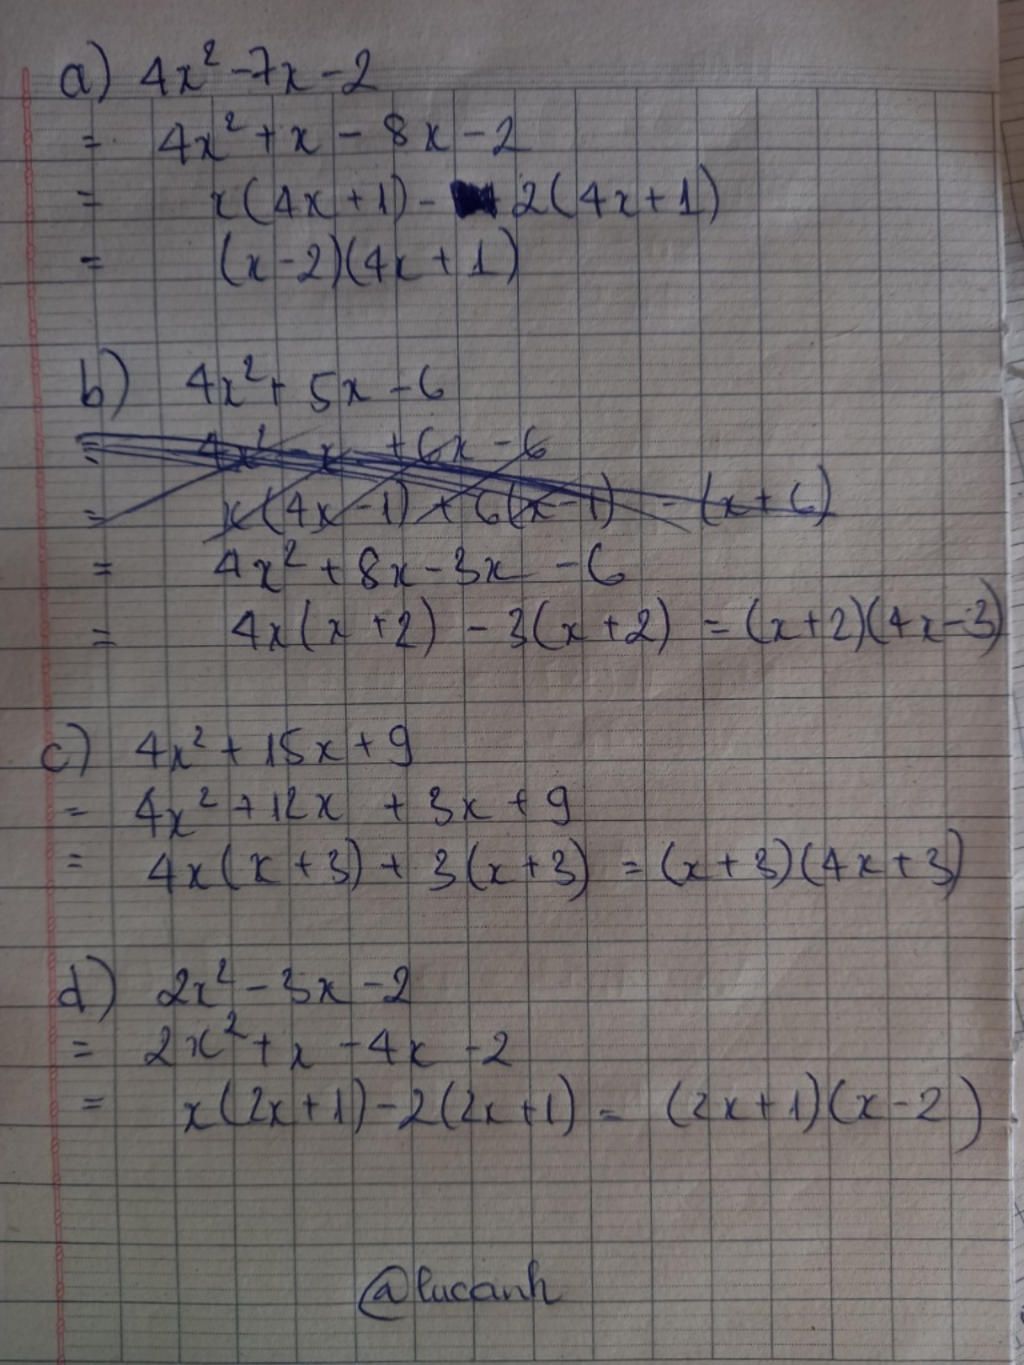 a) 4x² -7x -2
= 4x² + x - 8x -2
= x(4x+1) - 2(4x+1)
= (x-2)(4x+1)
b) 4x² + 5x - 6
= 4x² - x + 6x - 6
= x(4x-1) + 6(x-1) = (x+6)
= 4x² + 8x - 3x - 6
= 4x(x+2) - 3(x+2) = (x+2)(4x-3)
c) 4x² + 15x + 9
= 4x² + 12x + 3x + 9
= 4x(x+3) + 3(x+3) = (x+3)(4x+3)
d) 2x² - 3x - 2
= 2x² + x - 4x - 2
= x(2x+1) - 2(2x+1) = (2x+1)(x-2)
@lucanh